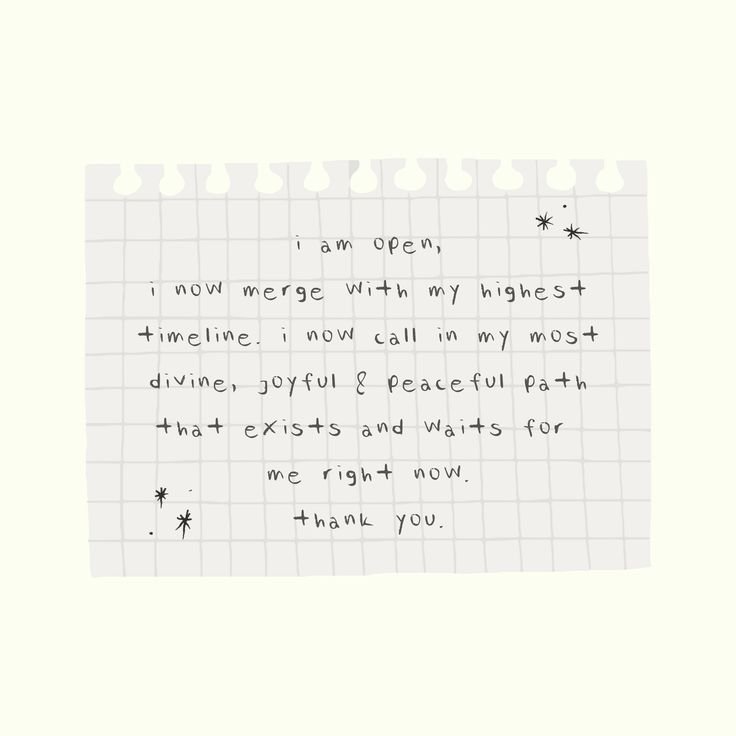 i am open,
i now merge with my highest
timeline. i now call in my most
divine, joyful & peaceful path
that exists and waits for
me right now.
thank you.